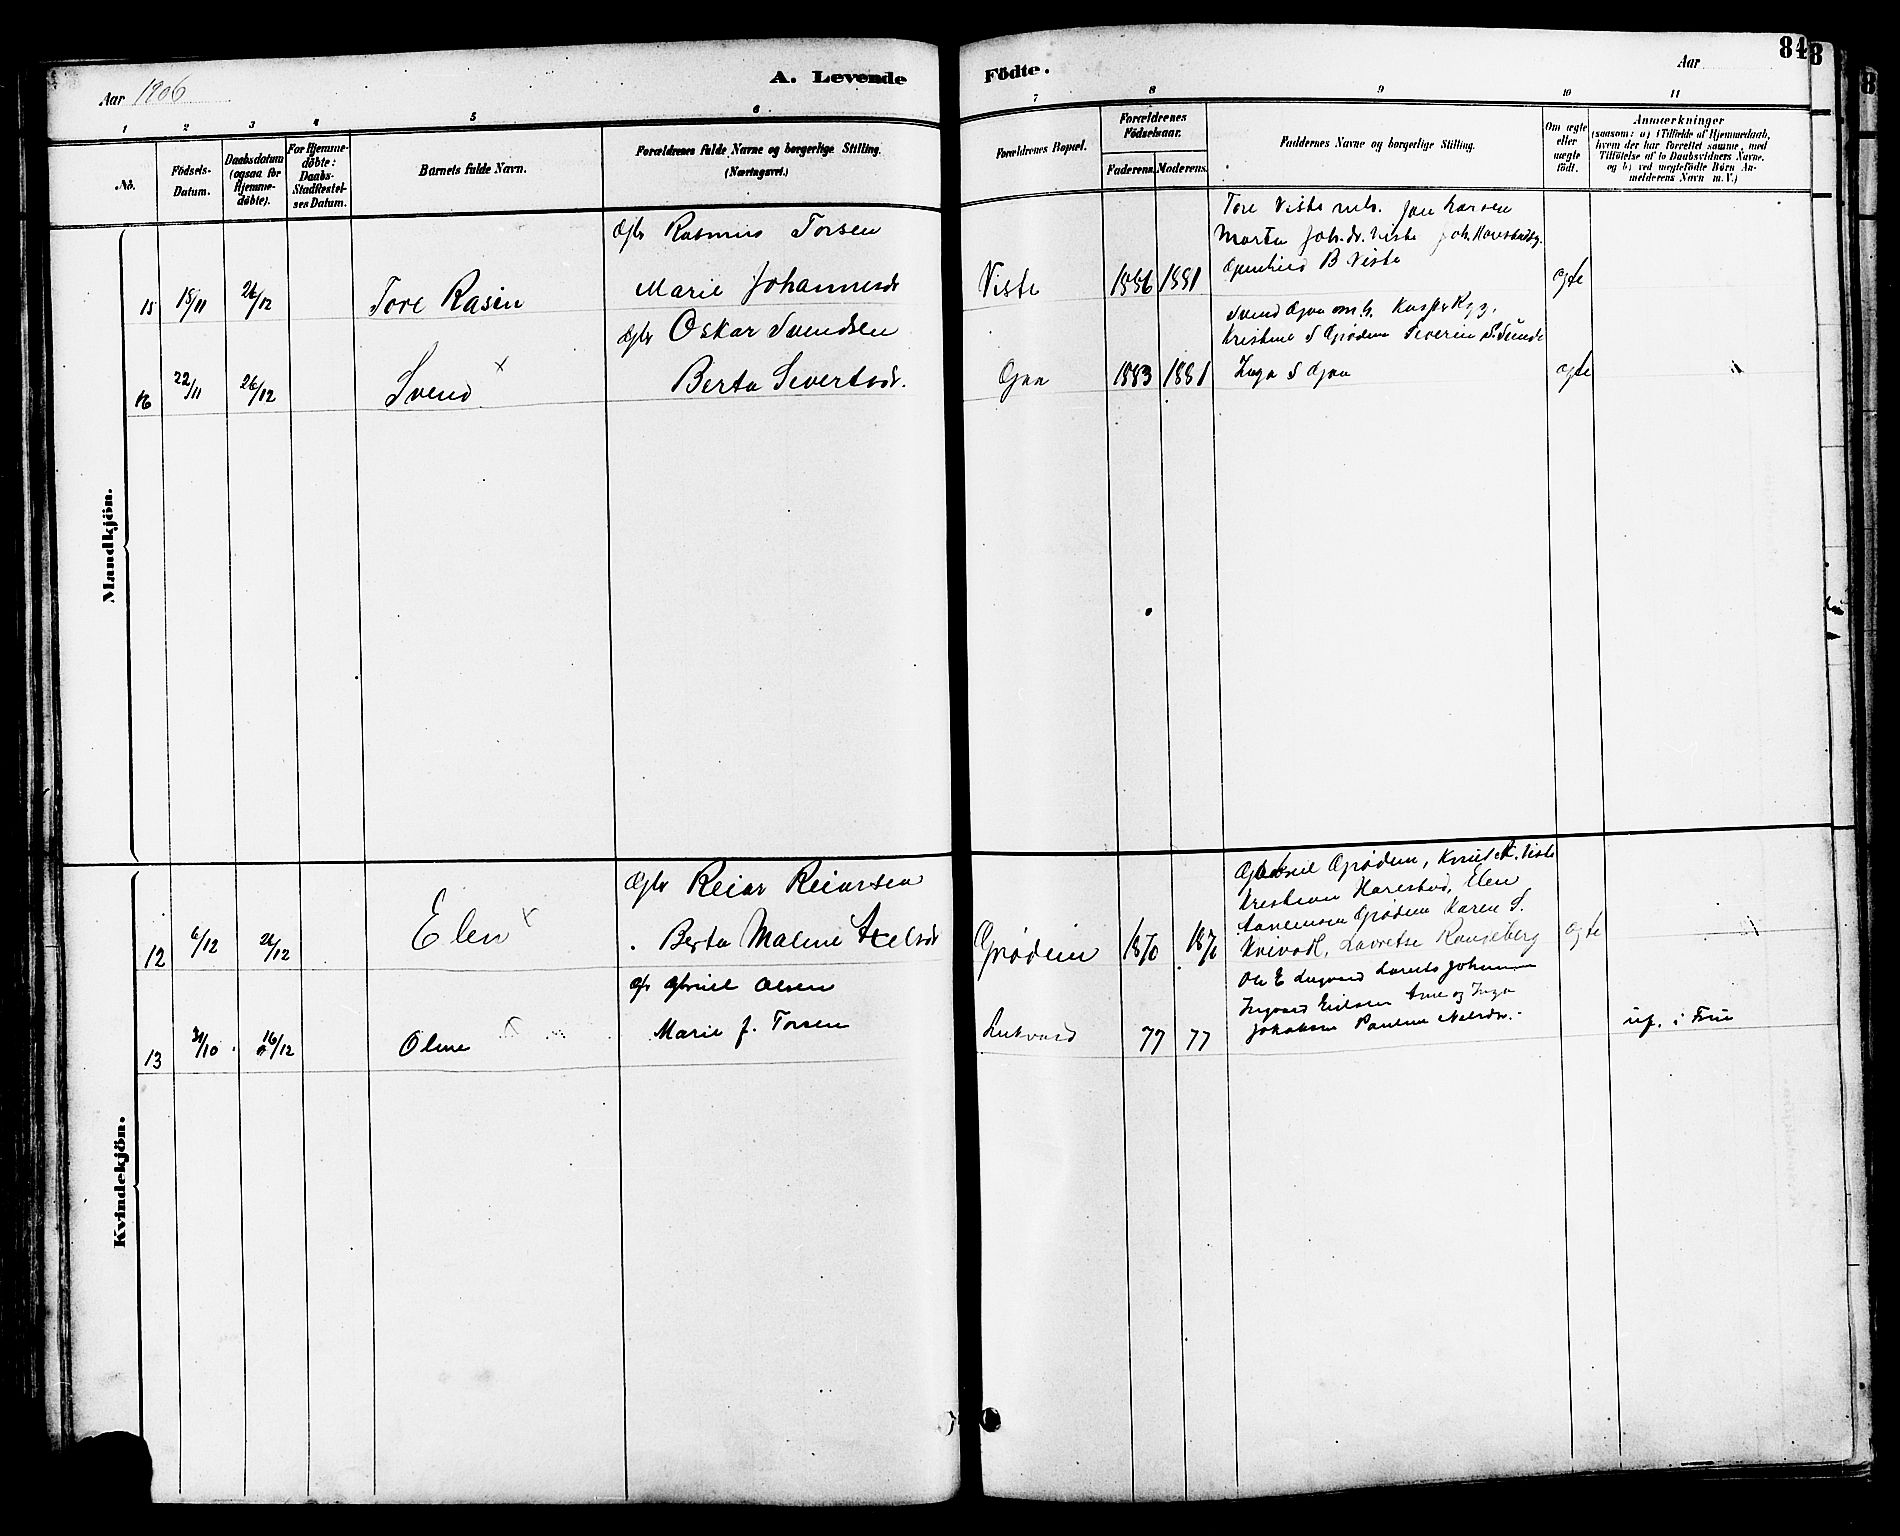 Aar 1906
A. Levende
Födte.
Aar
84
1 2 3 4 5 6 7 8 9 10 11
No.
Födsels-
Datum.
Daabsdatum
(ogsaa for
Hjemme-
döbte).
For Hjemme-
döbte:
Daabs-
Stadfestel-
ses Datum.
Barnets fulde Navn.
Forældrenes fulde Navne og borgerlige Stilling.
(Næringsvei.)
Forældrenes Bopæl.
Forældrenes
Födselsaar.
Faderens. Moderens.
Faddernes Navne og borgerlige Stilling.
Om ægte
eller
uægte
födt.
Anmærkninger
(saasom: a) i Tilfælde af Hjemmedaab,
hvem der har forrettet samme, med
Tilföielse af to Daabsvidners Navne,
og b) ved uægtefödte Börn An-
melderens Navn m. V.)
Mandkjön.
15 15/11 26/12 Tore Rasin
Gbr Rasmus Torsen
Marie Johannesdr
Viste 1886 1881
Tore Viste Jon Larsen
Marta Joh.dr. Viste
B Viste
ægte
16 22/11 26/12 Svend x
Gbr Oskar Svendsen
Berta Sivertsdr.
Goa 1883 1881
Svend Goa
Kristine S Grødem Severin S. Sunde
Inga S Goa
ægte
Kvindekjön.
12 6/12 26/12 Elen x
Gbr Reiar Reiarsen
Berta Maline Axelsdr
Grødem 1870 1870
Gabriel Grødem, Knut Viste
Kristian Harestad, Elen
Grødem Karen S.
ægte
13 31/10 16/12 Oline
Gbr Gabriel Olsen
Marie J. Torsen
77 77
Ole E
Ingvard Arne og Inga
Pauline